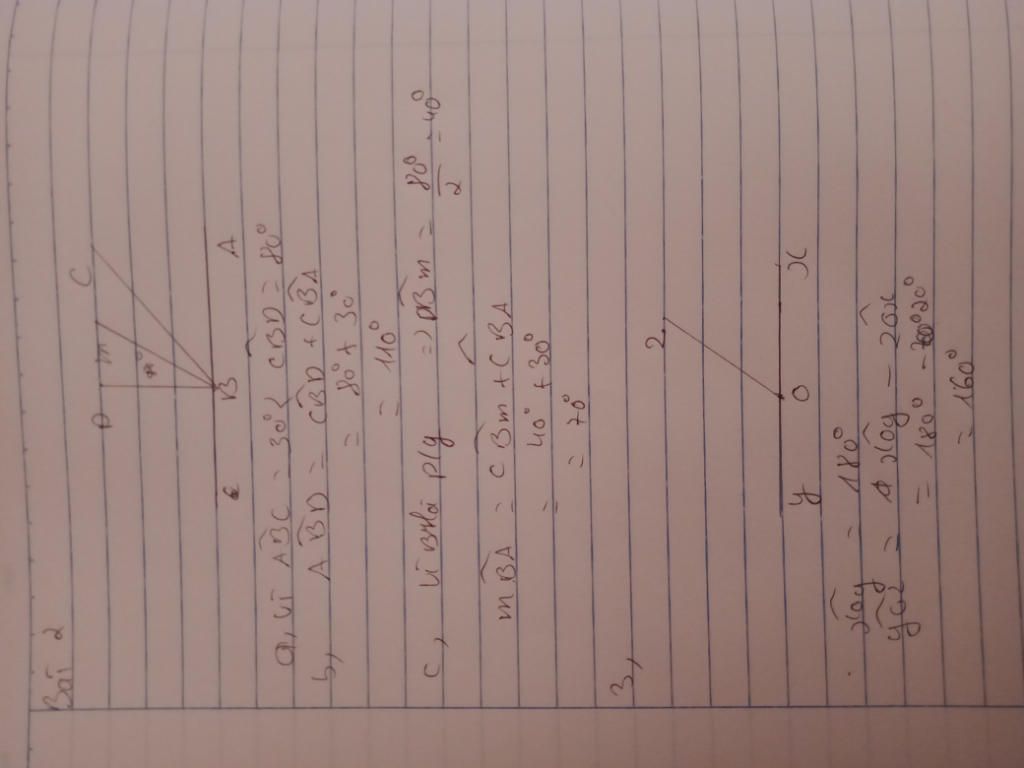 Bài 2
D m C
B A
a, vì ABC = 30° < CBD = 80°
b, ABD = CBD + CBA
= 80° + 30°
= 110°
c, vì BM là p/g => DBm = 80°/2 = 40°
mBA = CBm + CBA
= 40° + 30°
= 70°
3,
z
y O x
xOy = 180°
yOz = xOy - zOx
= 180° - 20°
= 160°